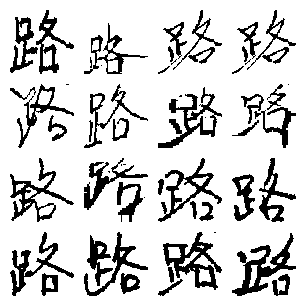 路路路路
路路路路
路路路路
路路路路